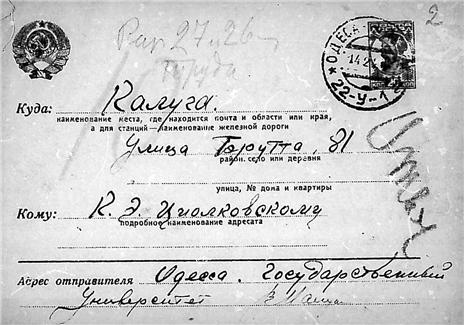 2
27 и 26
ОДЕСА
14 2
22-V-1
Куда: Калуга.
наименование места, где находится почта и области или края,
а для станций—наименование железной дороги
Улица Брутта, 81
район, село или деревня
улица, № дома и квартиры
Кому: К. Э. Циолковскому
подробное наименование адресата
Адрес отправителя Одесса. Государственный
Университет